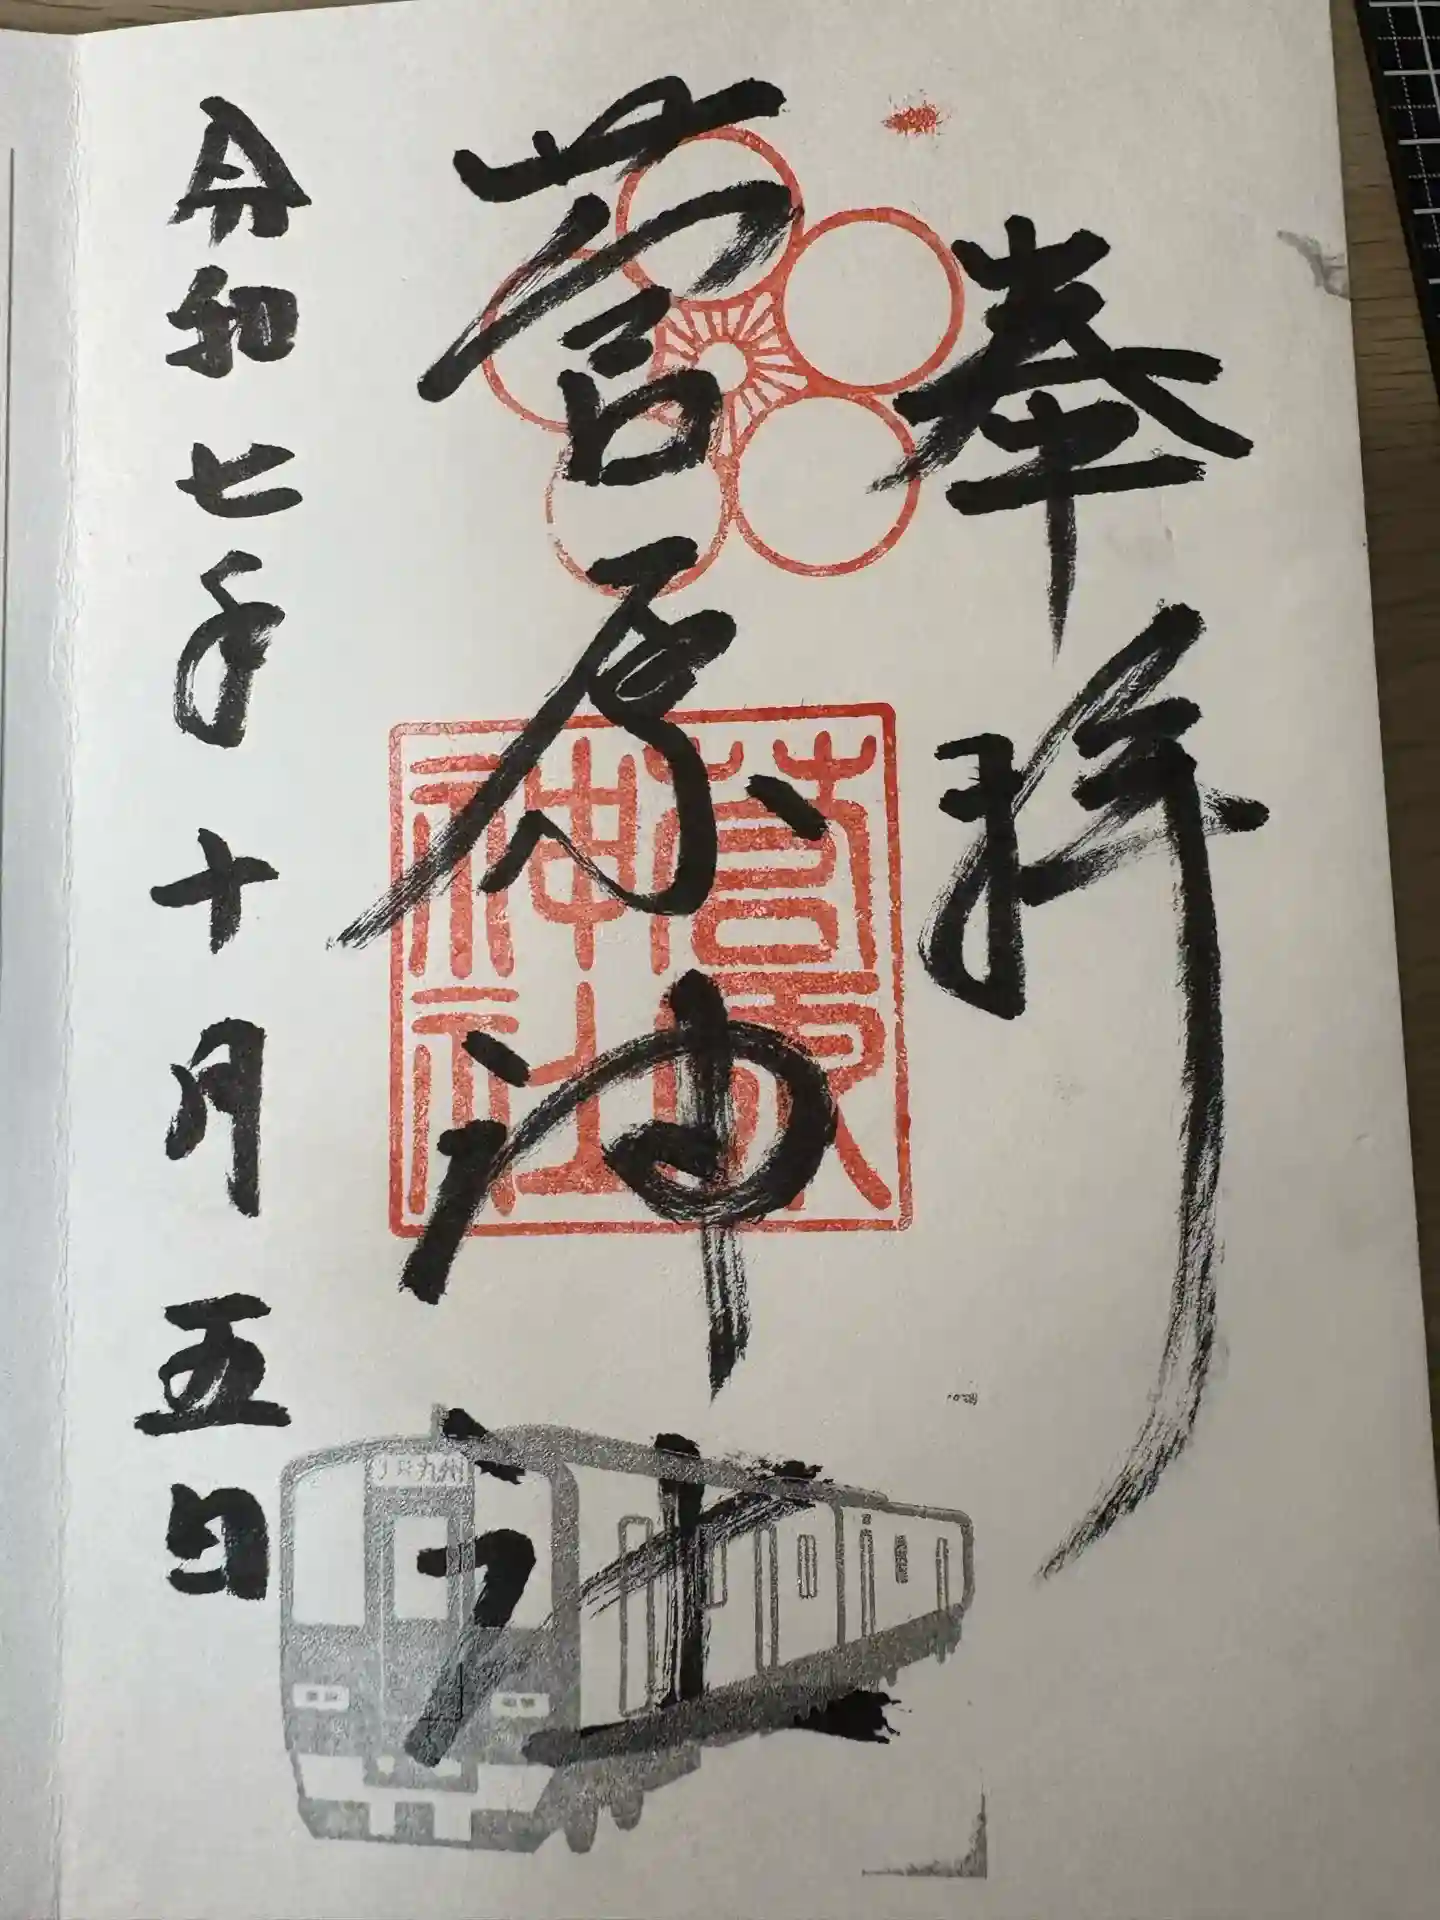 奉拝
菅原神社
菅原神社
令和七年十月五日
JR九州